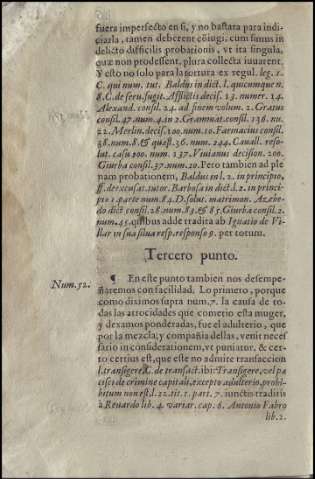 fuera imperfecto en si, y no bastara para indi-
ciarla, tamen deberent cōiugi, cum simus in
delicto difficilis probationis, vt ita singula,
quæ non prodessent, plura collecta iuuarent.
Y esto no solo para la tortura ex regul. leg. 1.
C. qui num. tut. Baldus in dict. l. quicumque n.
8. C. de seru. fugit. Afflictis decis. 13. numer. 14.
Alexand. consil. 24. ad finem volum. 2. Gratus
consil. 47. num. 4. in 2. Gramat. consil. 138. nu.
22. Merlin. decis. 100. num. 10. Farinacius consil.
58. num. 8. & quæst. 36. num. 244. Cauall. reso-
lut. casu 100. num. 137. Viuianus decision. 200.
Giurba consil. 37. num. 20. Pero tambien ad ple
nam probationem, Baldus in l. 2. in principio,
ff. de excusat. tutor. Barbosa in dict. l. 2. in princi-
pio 1. parte num. 84. D. solut. matrimon. Azebe-
do dict. consil. 28. num. 83. & 85. Giurba consil. 2.
num. 45. quibus adde tradita ab Ignatio de Vi-
llar in sua silua resp. responso 9. per totum.
Tercero punto.
Num. 52.
¶ En este punto tambien nos desempe-
ñaremos con facilidad. Lo primero, porque
como diximos supra num. 7. la causa de to-
das las atrocidades que cometio esta muger,
y dexamos ponderadas, fue el adulterio, que
por la mezcla, y compañia dellas, venit neces
sario in considerationem, vt puniatur, & cer-
to certius est, que este no admite transaccion
l. transigere, C. de transact. ibi: Transigere, vel pa
cisci de crimine capitali, excepto adulterio, prohi-
bitum non est, l. 22. tit. 1. part. 7. iunctis traditis
à Reuardo lib. 4. variar. cap. 6. Antonio Fabro
lib. 2.